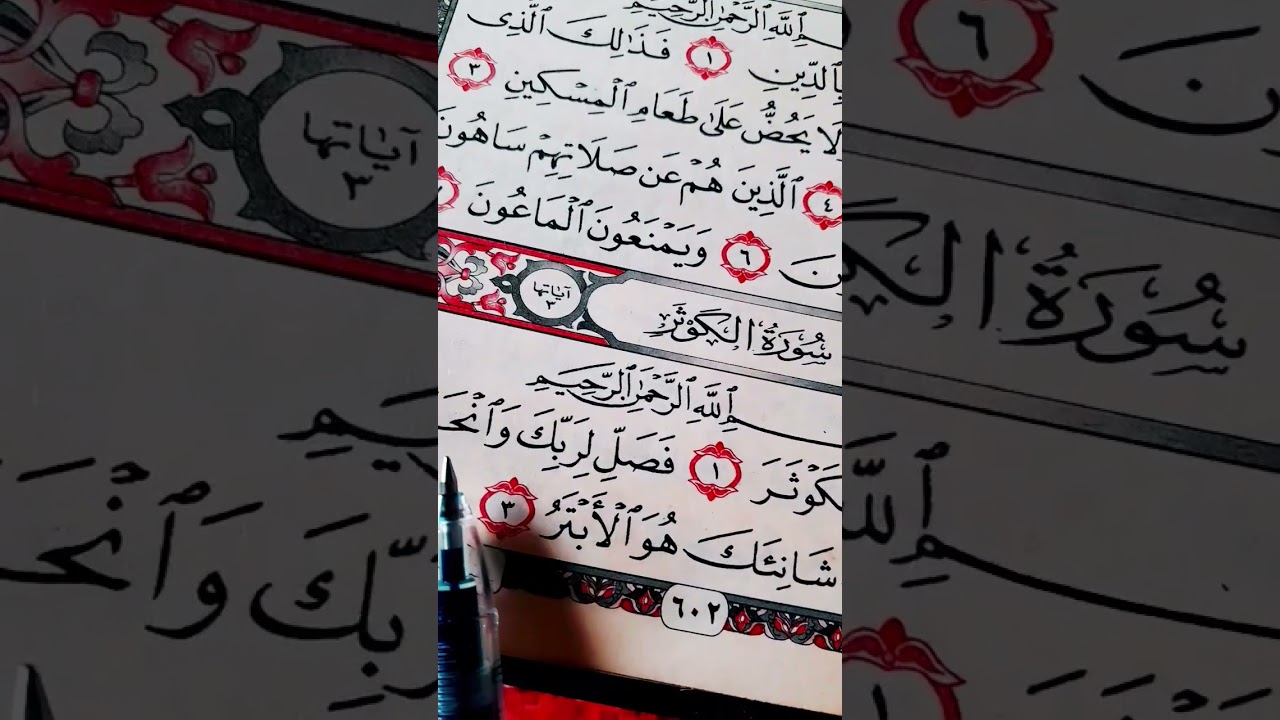 ـمِ ٱللَّهِ ٱلرَّحْمَٰنِ ٱلرَّحِيمِ
بِٱلدِّينِ ١ فَذَٰلِكَ ٱلَّذِى
لَا يَحُضُّ عَلَىٰ طَعَامِ ٱلْمِسْكِينِ ٣
٤ ٱلَّذِينَ هُمْ عَن صَلَاتِهِمْ سَاهُونَ
نَ ٦ وَيَمْنَعُونَ ٱلْمَاعُونَ
سُورَةُ الكَوْثَرِ
آيَاتها ٣
ـمِ ٱللَّهِ ٱلرَّحْمَٰنِ ٱلرَّحِيمِ
ـكَوْثَرَ ١ فَصَلِّ لِرَبِّكَ وَٱنْحَـ
شَانِئَكَ هُوَ ٱلْأَبْتَرُ ٣
٦٠٢